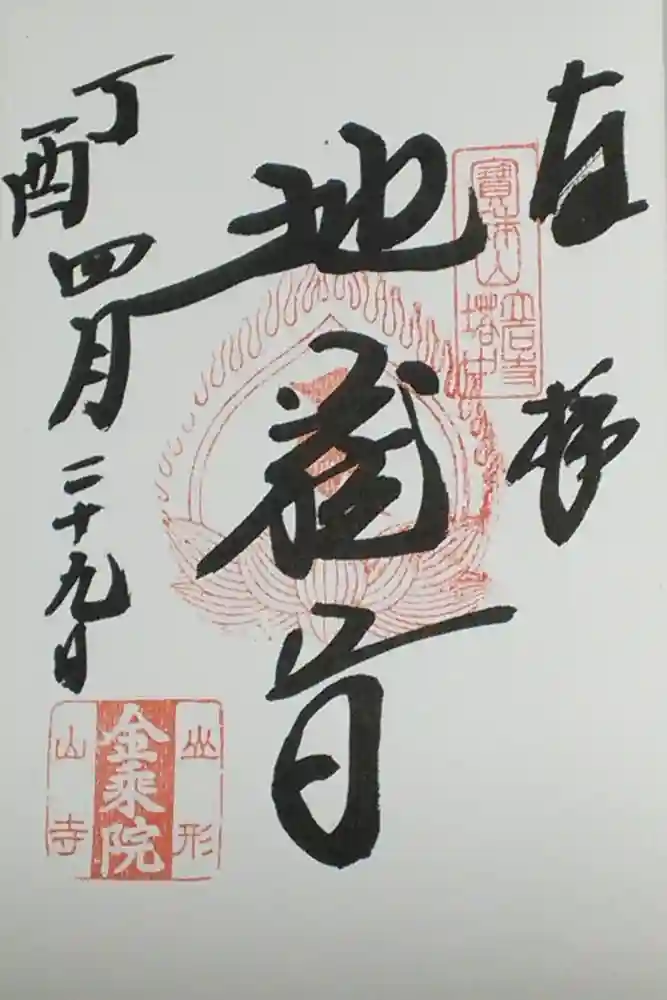 奉拝
寶珠山
立石寺
塔中
地蔵尊
丁酉四月二十九日
山形
金乘院
山寺